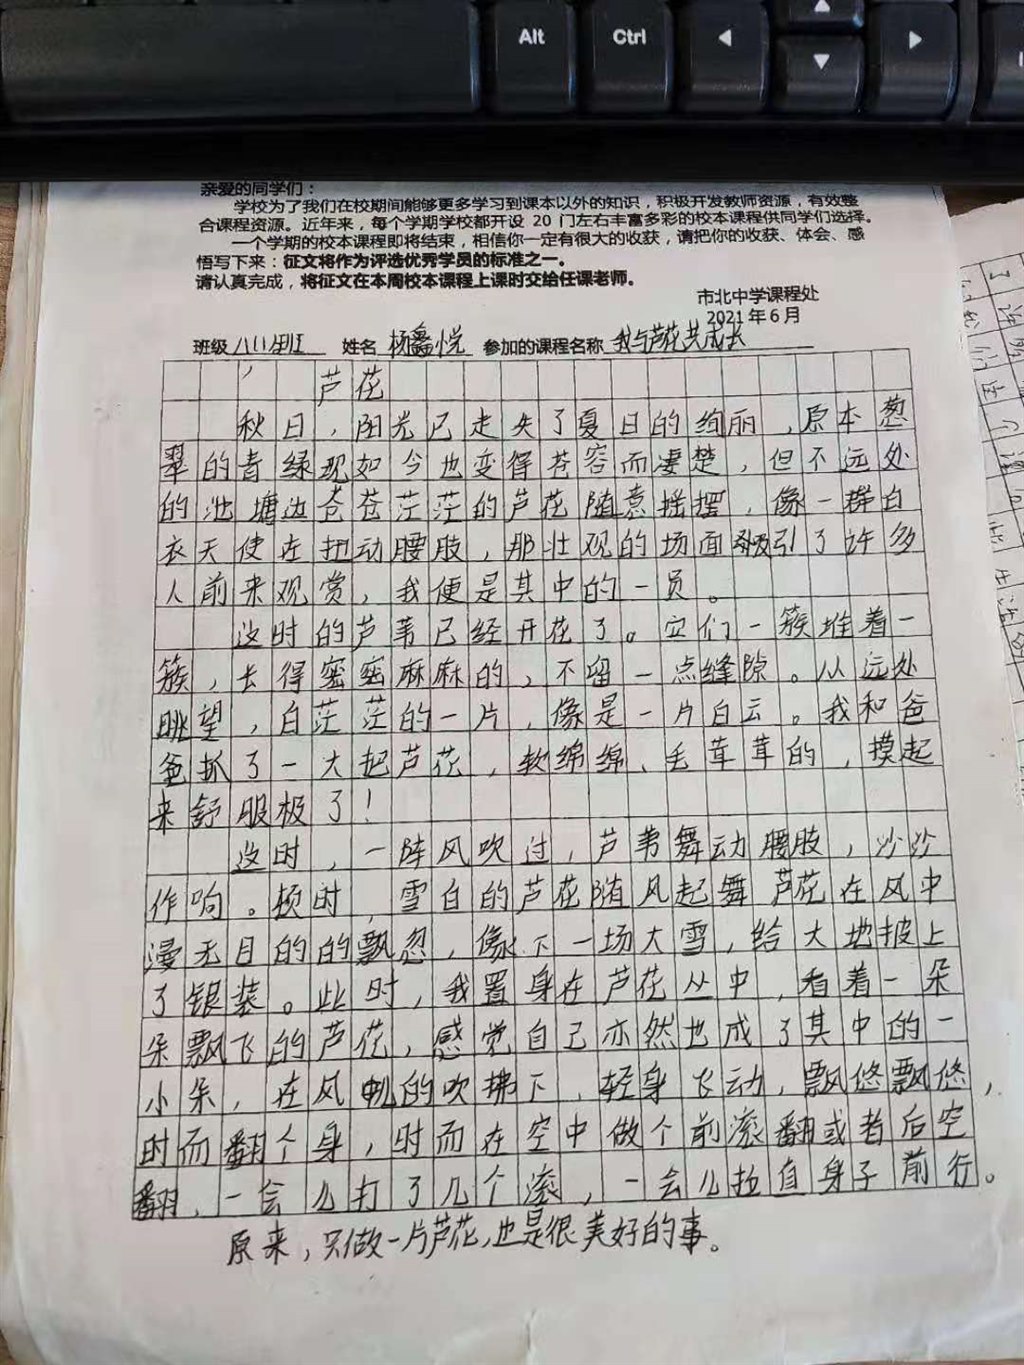 Alt
Ctrl
亲爱的同学们：
学校为了我们在校期间能够更多学习到课本以外的知识，积极开发教师资源，有效整
合课程资源。近年来，每个学期学校都开设 20 门左右丰富多彩的校本课程供同学们选择。
一个学期的校本课程即将结束，相信你一定有很大的收获，请把你的收获、体会、感
悟写下来：征文将作为评选优秀学员的标准之一。
请认真完成，将征文在本周校本课程上课时交给任课老师。
市北中学课程处
2021 年 6 月
班级 八(1)班 姓名 杨鑫悦 参加的课程名称 我与芦花共成长
芦花
秋日，阳光已走失了夏日的绚丽，原本葱
翠的青绿现如今也变得苍容而凄楚，但不远处
的池塘边苍苍茫茫的芦花随意摇摆，像一群白
衣天使在扭动腰肢，那壮观的场面吸引了许多
人前来观赏，我便是其中的一员。
这时的芦苇已经开花了。它们一簇堆着一
簇，长得密密麻麻的，不留一点缝隙。从远处
眺望，白茫茫的一片，像是一片白云。我和爸
爸抓了一大把芦花，软绵绵、毛茸茸的，摸起
来舒服极了！
这时，一阵风吹过，芦苇舞动腰肢，沙沙
作响。顿时，雪白的芦花随风起舞 芦花在风中
漫无目的的飘忽，像下一场大雪，给大地披上
了银装。此时，我置身在芦花丛中，看着一朵
朵飘飞的芦花，感觉自己亦然也成了其中的一
小朵，在风 的吹拂下，轻身飞动，飘悠飘悠，
时而翻个身，时而在空中做个前滚翻或者后空
翻，一会儿打了几个滚，一会儿拉直身子前行。
原来，只做一片芦花，也是很美好的事。